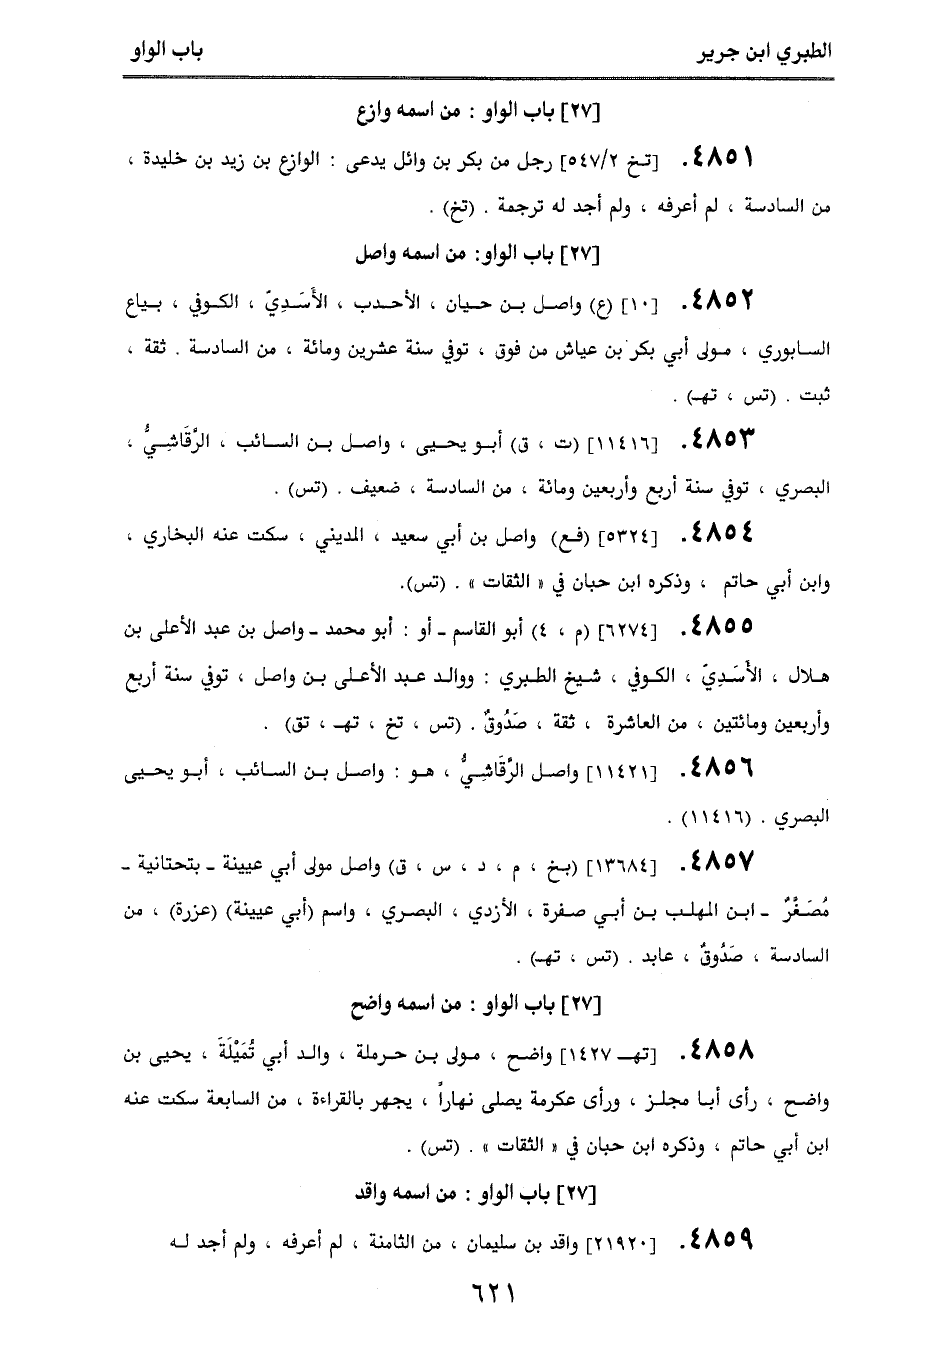 الطبري ابن جرير باب الواو
[٢٧] باب الواو : من اسمه وازع
٤٨٥١. [تخ ٥٤٧/٢] رجل من بكر بن وائل يدعى : الوازع بن زيد بن خليدة ،
من السادسة ، لم أعرفه ، ولم أجد له ترجمة . (تخ) .
[٢٧] باب الواو: من اسمه واصل
٤٨٥٢. [١٠] (ع) واصل بن حيان ، الأحدب ، الأَسَدِيّ ، الكوفي ، بياع
السابوري ، مولى أبي بكر بن عياش من فوق ، توفي سنة عشرين ومائة ، من السادسة . ثقة ،
ثبت . (تس ، تهـ) .
٤٨٥٣. [١١٤١٦] (ت ، ق) أبو يحيى ، واصل بن السائب ، الرَّقَاشِيُّ ،
البصري ، توفي سنة أربع وأربعين ومائة ، من السادسة ، ضعيف . (تس) .
٤٨٥٤. [٥٣٢٤] (فع) واصل بن أبي سعيد ، المديني ، سكت عنه البخاري ،
وابن أبي حاتم ، وذكره ابن حبان في « الثقات » . (تس).
٤٨٥٥. [٦٢٧٤] (م ، ٤) أبو القاسم ـ أو : أبو محمد ـ واصل بن عبد الأعلى بن
هلال ، الأَسَدِيّ ، الكوفي ، شيخ الطبري : ووالد عبد الأعلى بن واصل ، توفي سنة أربع
وأربعين ومائتين ، من العاشرة ، ثقة ، صَدُوقٌ . (تس ، تخ ، تهـ ، تق) .
٤٨٥٦. [١١٤٢١] واصل الرَّقَاشِيُّ ، هو : واصل بن السائب ، أبو يحيى
البصري . (١١٤١٦) .
٤٨٥٧. [١٣٦٨٤] (بخ ، م ، د ، س ، ق) واصل مولى أبي عيينة ـ بتحتانية ـ
مُصَغَّرٌ ـ ابن المهلب بن أبي صفرة ، الأزدي ، البصري ، واسم (أبي عيينة) (عزرة) ، من
السادسة ، صَدُوقٌ ، عابد . (تس ، تهـ) .
[٢٧] باب الواو : من اسمه واضح
٤٨٥٨. [تهـ ١٤٢٧] واضح ، مولى بن حرملة ، والد أبي تُمَيْلَةَ ، يحيى بن
واضح ، رأى أبا مجلز ، ورأى عكرمة يصلى نهاراً ، يجهر بالقراءة ، من السابعة سكت عنه
ابن أبي حاتم ، وذكره ابن حبان في « الثقات » . (تس) .
[٢٧] باب الواو : من اسمه واقد
٤٨٥٩. [٢١٩٢٠] واقد بن سليمان ، من الثامنة ، لم أعرفه ، ولم أجد له
٦٢١